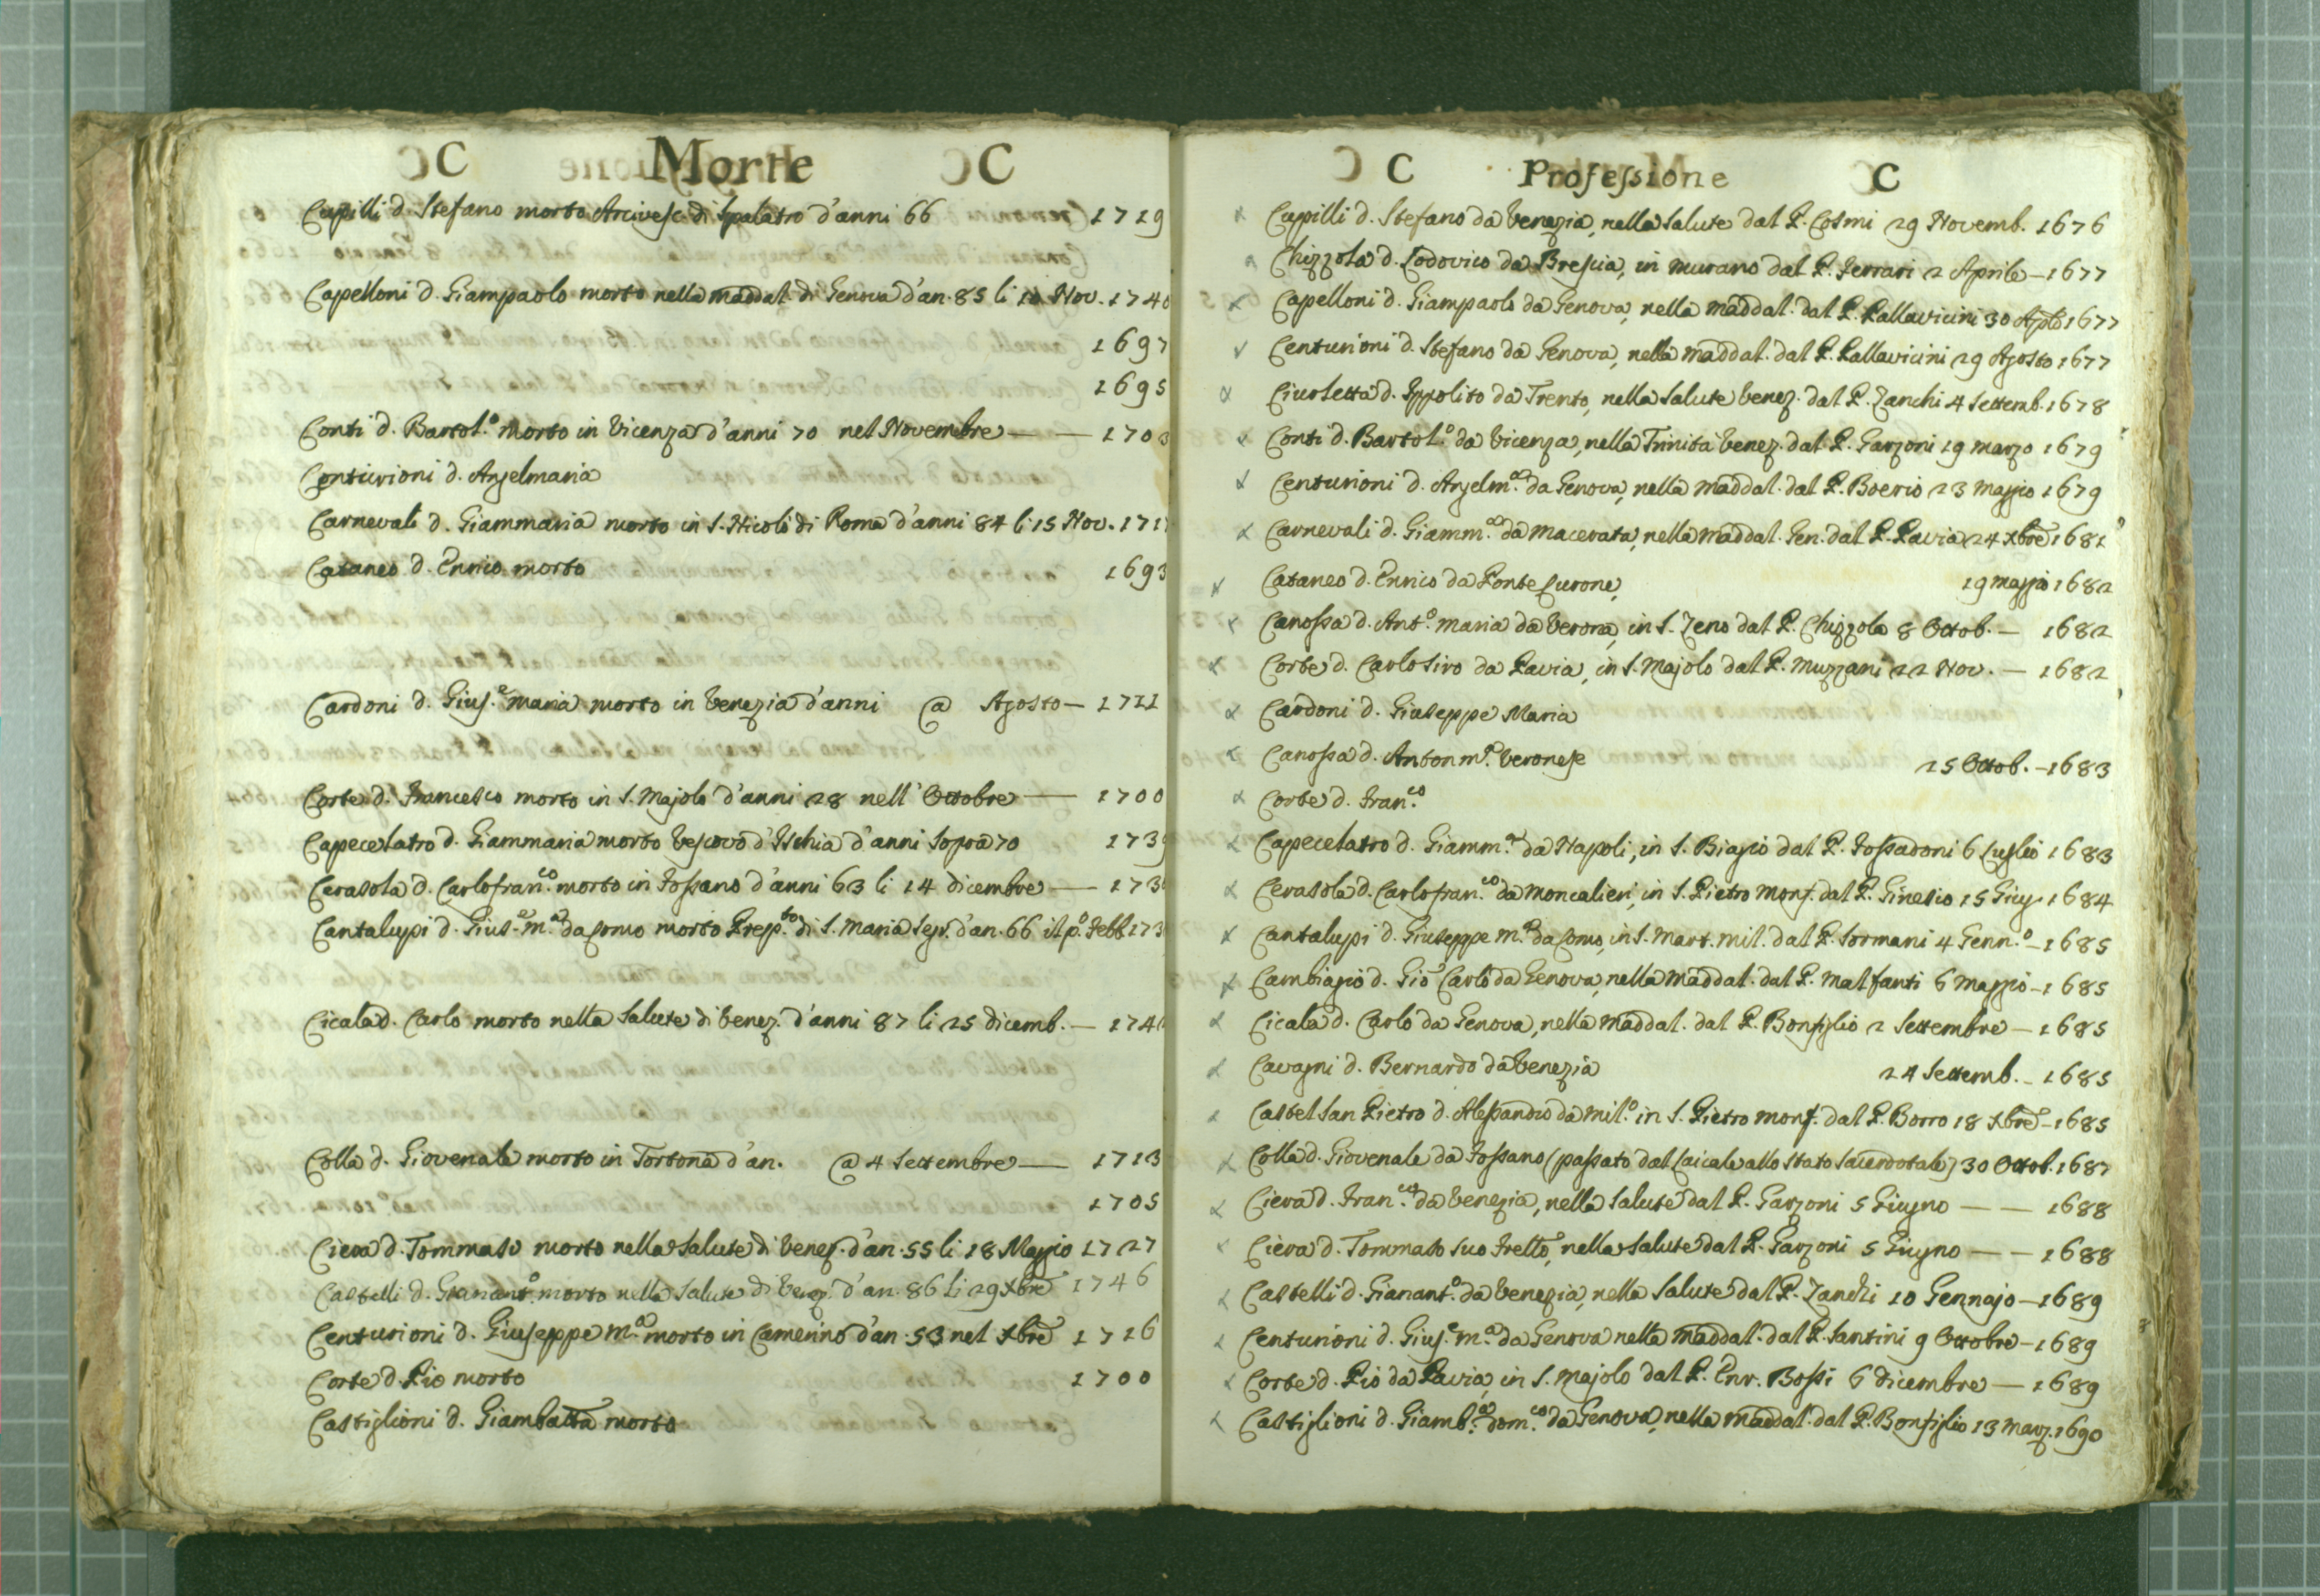 C Morte C
Cupilli d. Stefano morto Arcivesc. di Spalatro d'anni 66 1719
Capelloni d. Giampaolo morto nella Maddal. di Genova d'an. 85 li 10 Nov. 1740
1697
1695
Conti d. Bartol.o morto in Vicenza d'anni 70 nel Novembre — — 1703
Centurioni d. Angelmaria
Carnevali d. Giammaria morto in S. Nicolò di Roma d'anni 84 li 15 Nov. 171
Cataneo d. Ennio morto 1693
Cardoni d. Gius.e Maria morto in Venezia d'anni @ Agosto — 1711
Corte d. Francesco morto in S. Majolo d'anni 28 nell' Ottobre — 1700
Capecelatro d. Giammaria morto Vescovo d'Ischia d'anni sopra 70 173
Cerasola d. Carlofran.co morto in Fossano d'anni 63 li 14 dicembre — 173
Cantalupi d. Gius.e M.a da Como morto Prep.to di S. Maria Segr. d'an. 66 il p.o Febb. 173
Cicala d. Carlo morto nella Salute di Venez. d'anni 87 li 25 dicemb. — 174
Colla d. Giovenale morto in Tortona d'an. @ 4 Settembre — 1713
1705
Ciera d. Tommaso morto nella Salute di Venez. d'an. 55 li 18 Maggio 1727
Castelli d. Gianant.o morto nella Salute di Venez. d'an. 86 li 29 Xbre 1746
Centurioni d. Giuseppe M.a morto in Camerino d'an. 53 nel Xbre 1716
Corte d. Pio morto 1700
Castiglioni d. Giambatta morto
C Professione C
Cupilli d. Stefano da Venezia, nella Salute dal P. Cosmi 29 Novemb. 1676
Chizzola d. Lodovico da Brescia, in Murano dal P. Ferrari 2 Aprile — 1677
Capelloni d. Giampaolo da Genova, nella Maddal. dal P. Pallavicini 30 Agsto 1677
Centurioni d. Stefano da Genova, nella Maddal. dal P. Pallavicini 29 Agosto 1677
Civoletta d. Ippolito da Trento, nella Salute Venez. dal P. Zanchi 4 Settemb. 1678
Conti d. Bartol.o da Vicenza, nella Trinità Venez. dal P. Garzoni 19 Marzo 1679
Centurioni d. Angelm.a da Genova, nella Maddal. dal P. Boerio 23 Maggio 1679
Carnevali d. Giamm.a da Macerata, nella Maddal. Gen. dal P. Pavia 24 Xbre 1681
Cataneo d. Ennio da Ponte Curone, 19 Maggio 1682
Canossa d. Ant.o Maria da Verona, in S. Zeno dal P. Chizzola 8 Ottob. — 1682
Corte d. Carlo Siro da Pavia, in S. Majolo dal P. Muzzani 22 Nov. — 1682
Cardoni d. Giuseppe Maria
Canossa d. Anton m.a Veronese 25 Ottob. — 1683
Corte d. Fran.co
Capecelatro d. Giamm.a da Napoli, in S. Biagio dal P. Fossadoni 6 Luglio 1683
Cerasola d. Carlofran.co da Moncalieri, in S. Pietro Monf. dal P. Ginesio 15 Giug. 1684
Cantalupi d. Giuseppe M.a da Como, in S. Mart. Mil. dal P. Sormani 4 Genn.o — 1685
Cambiagio d. Gio Carlo da Genova, nella Maddal. dal P. Malfanti 6 Maggio — 1685
Cicala d. Carlo da Genova, nella Maddal. dal P. Bonfiglio 2 Settembre — 1685
Cavagni d. Bernardo da Venezia 24 Settemb. — 1685
Castel San Pietro d. Alessandro da Mil.o in S. Pietro Monf. dal P. Borro 18 Xbre — 1685
Colla d. Giovenale da Fossano (passato dal Laicale allo Stato Sacerdotale) 30 Ottob. 1687
Ciera d. Fran.co da Venezia, nella Salute dal P. Garzoni 5 Giugno — — 1688
Ciera d. Tommaso suo Frello, nella Salute dal P. Garzoni 5 Giugno — — 1688
Castelli d. Gianant.o da Venezia, nella Salute dal P. Zanchi 10 Gennajo — 1689
Centurioni d. Gius.e M.a da Genova nella Maddal. dal P. Santini 9 Ottobre — 1689
Corte d. Pio da Pavia, in S. Majolo dal P. Enr. Bossi 6 dicembre — 1689
Castiglioni d. Giamb.a Dom.co da Genova, nella Maddal. dal P. Bonfiglio 13 Marz. 1690